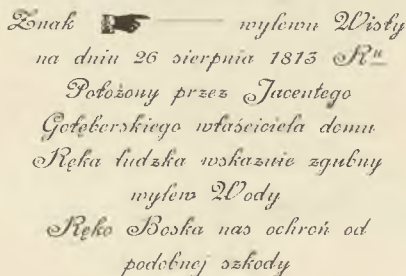 Znak ☛ wylewu Wisły
na dniu 26 sierpnia 1813 Rᵘ
Położony przez Jacentego
Gołęberskiego właściciela domu
Ręka ludzka wskazuie zgubny
wylew Wody
Ręko Boska nas ochroń od
podobnej szkody